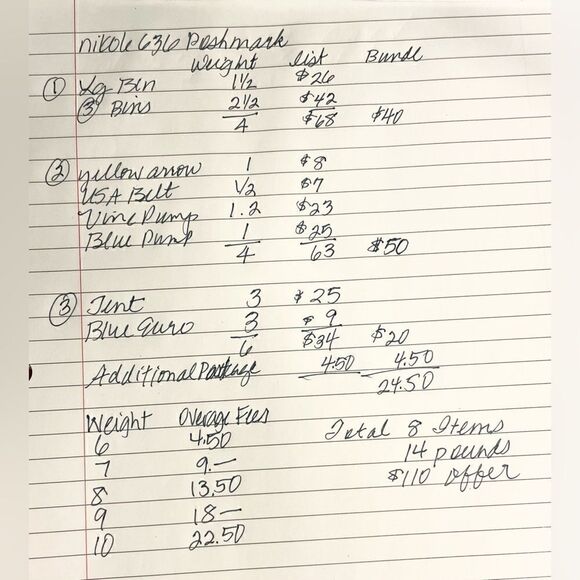 nikole636 Poshmark
Weight List Bundl
① Lg Bin 1½ $26
③ Bins 2½ $42
4 $68 $40
② yellow arrow 1 $8
USA Belt ½ $7
Vine Pump 1.2 $23
Blue Pump 1 $25
4 63 $50
③ Tent 3 $25
Blue Euro 3 $9
6 $34 $20
Additional Postage 4.50 4.50
24.50
Weight Overage Fees
6 4.50
7 9.—
8 13.50
9 18—
10 22.50
Total 8 Items
14 pounds
$110 offer